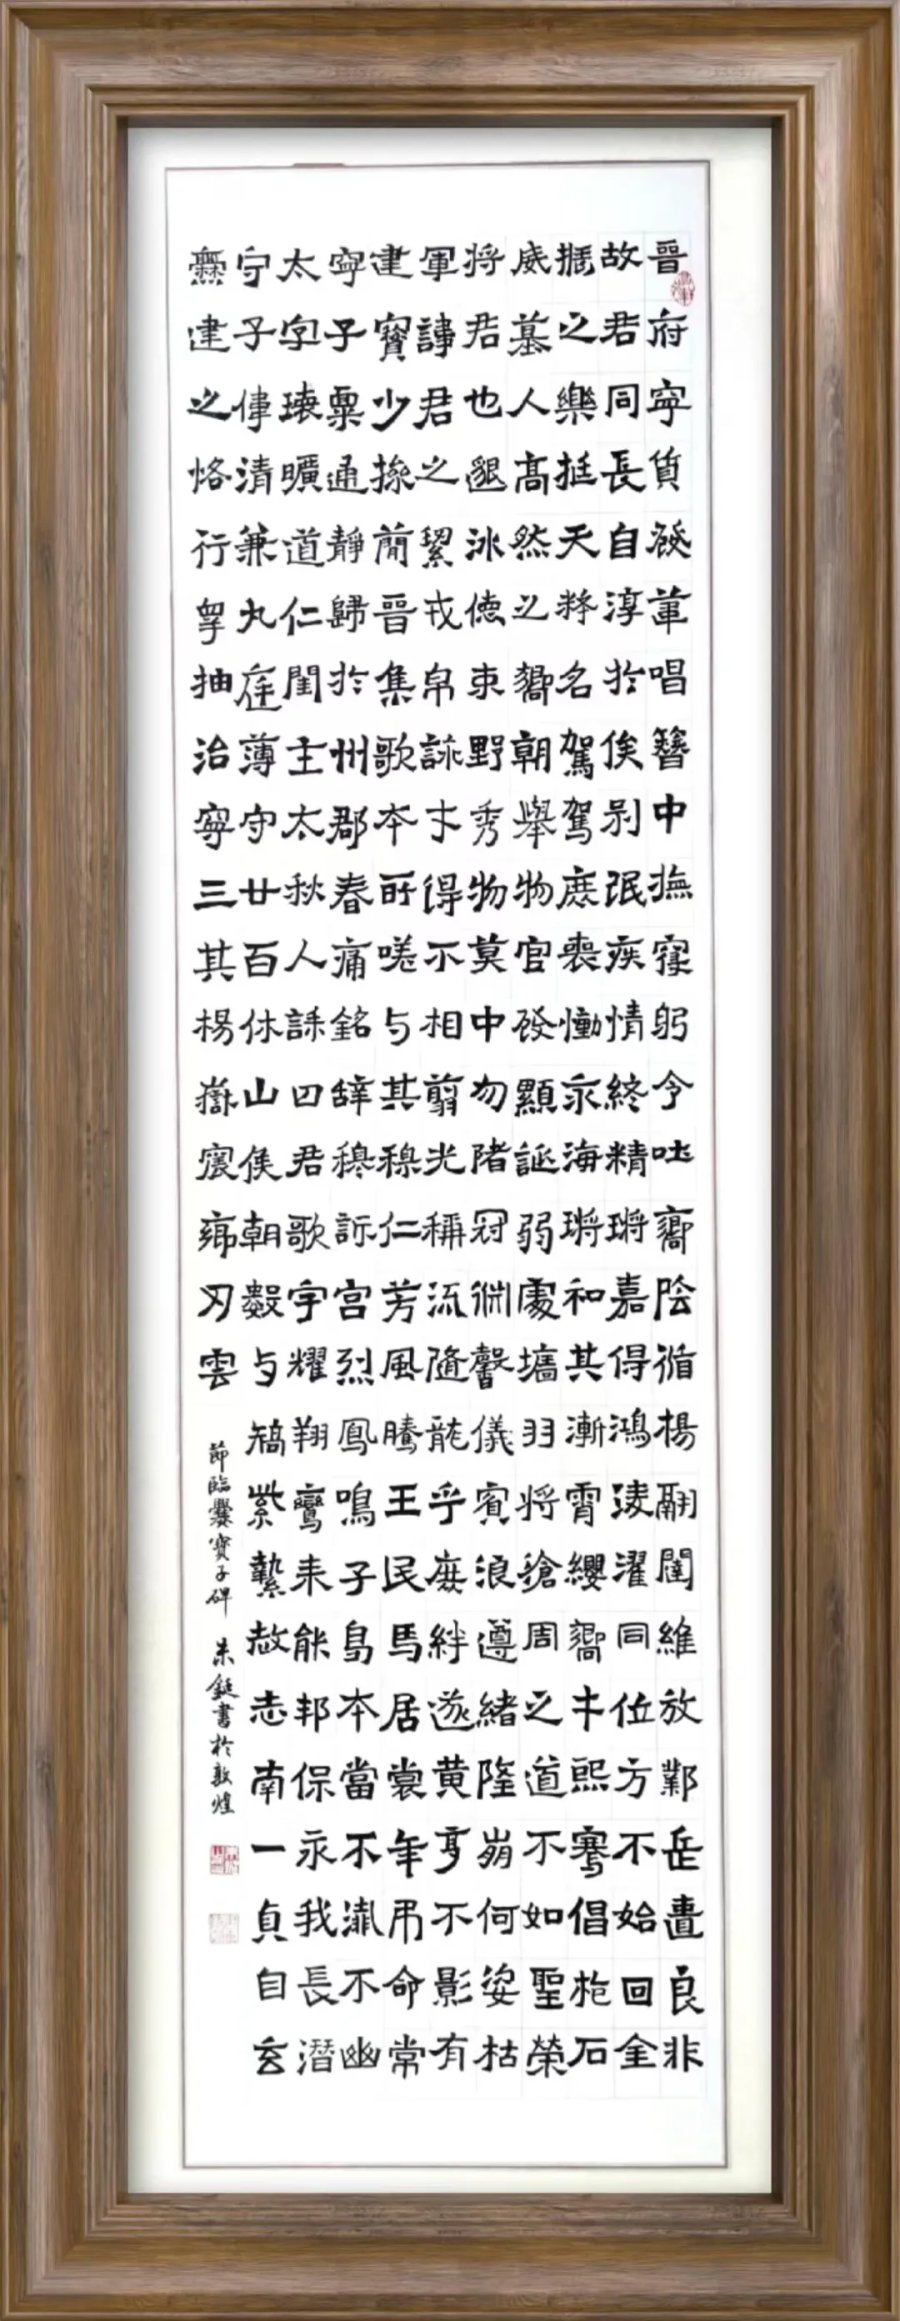 晉故振威將軍建寧太守爨
府君之墓君諱寶子字子建
寧同樂人也君少稟瓌偉之
質長挺高邈之操通曠清恪
發自天然冰絜簡靜道兼行
葦淳粹之德戎晉歸仁九皋
唱於名響束帛集於閨庭抽
簪俟駕朝野詠歌州主簿治
中別駕舉秀才本郡太守寧
撫氓庶物物得所春秋廿三
寢疾喪官莫不嗟痛人百其
躬情慟發中相与銘誄休揚
令終永顯勿翦其辭曰山嶽
吐精海誕陼光穆穆君侯震
響鏘鏘弱冠稱仁詠歌朝鄉
陰嘉和處淵流芳宮宇數刃
循得其墉馨隨風烈耀与雲
揚鴻漸羽儀龍騰鳳翔矯
翮淩霄將賓乎王鳴鸞紫
闥濯纓滄浪庶民子来縶
維同響周遵絆馬曷能赦
放位才之緒遂居本邦志
鄴方熙道隆黄裳當保南
岳不騫不崩享年不永一
匱始倡如何不弔殲我貞
良回抱聖姿影命不長自
非金石榮枯有常幽潛玄
節臨爨寶子碑 朱鋌書於敦煌